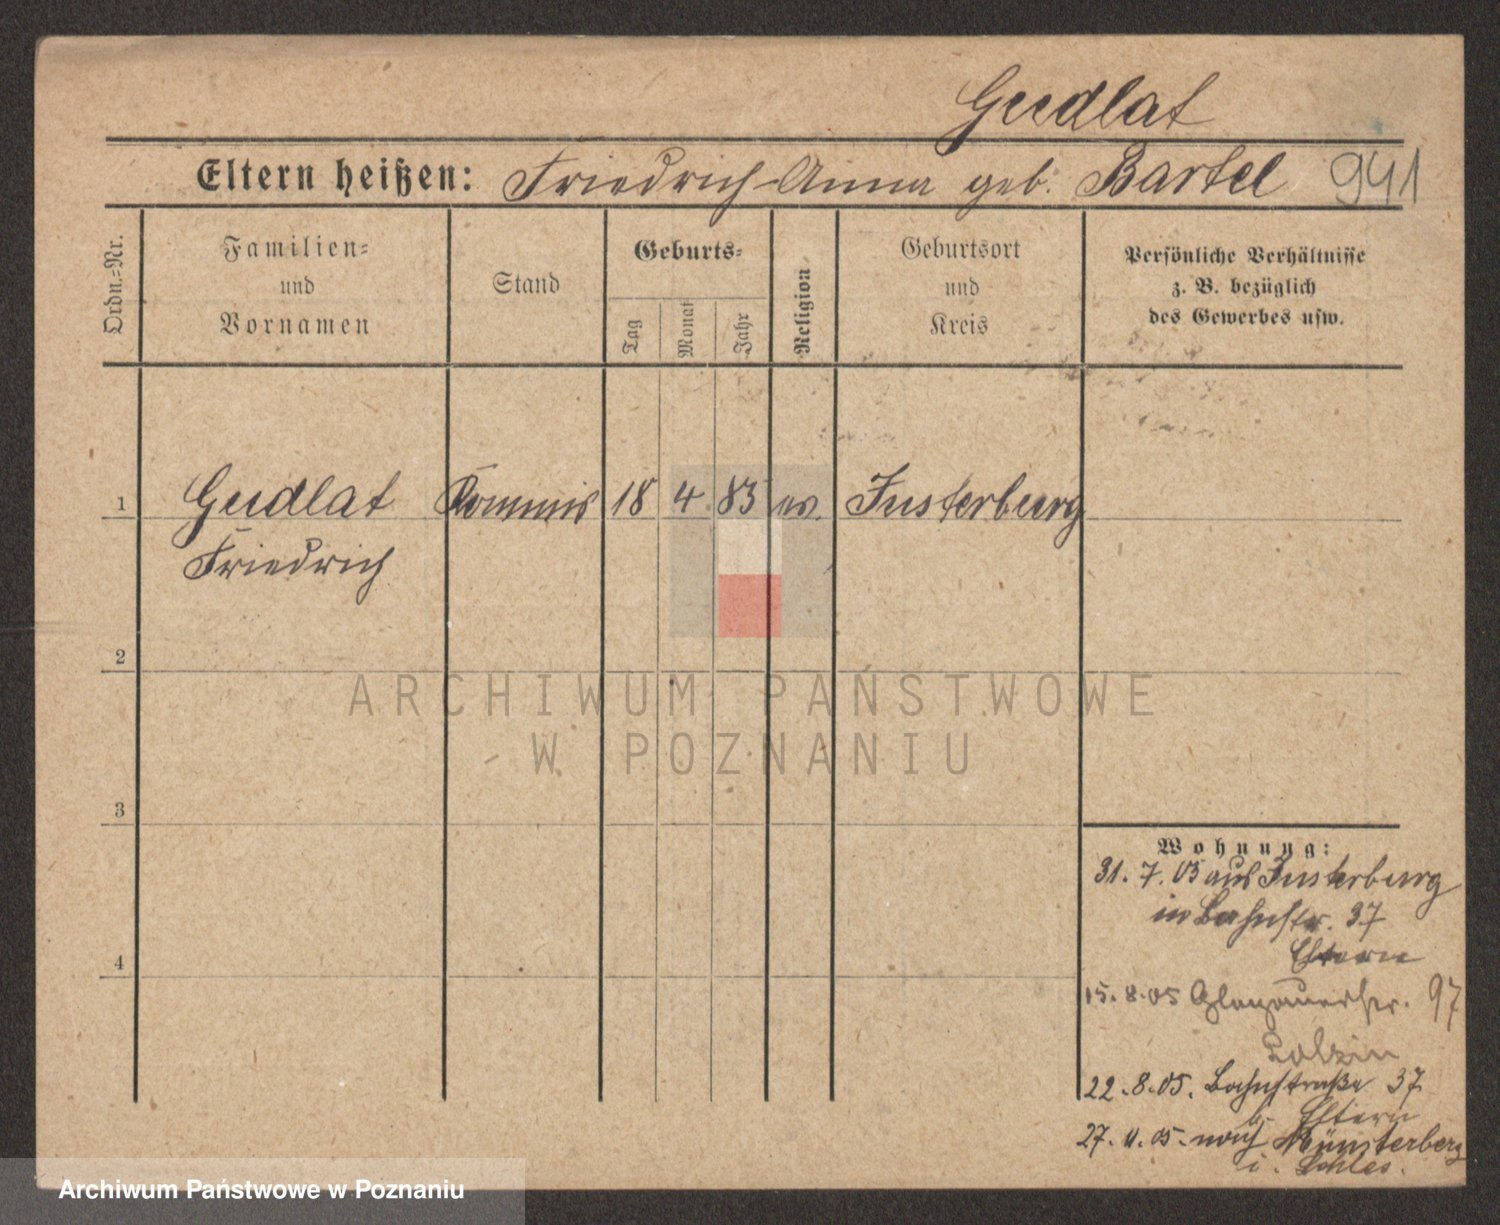 Gudlat
Eltern heißen: Friedrich - Anna geb. Bartel 941
Ordn.=Nr.
Familien=
und
Vornamen
Stand
Geburts=
Tag
Monat
Jahr
Religion
Geburtsort
und
Kreis
Persönliche Verhältnisse
z. B. bezüglich
des Gewerbes usw.
1 Gudlat Kommis 18 4 83 ev. Insterburg
Friedrich
2
3
4
ARCHIWUM PAŃSTWOWE
W POZNANIU
Wohnung:
31. 7. 05 aus Insterburg
in Bahnstr. 37
Eltern
15. 8. 05 Glogauerstr. 97
22. 8. 05. Bahnstraße 37
b. Eltern
27. 11. 05. nach Münsterberg
i. Schles.
Archiwum Państwowe w Poznaniu